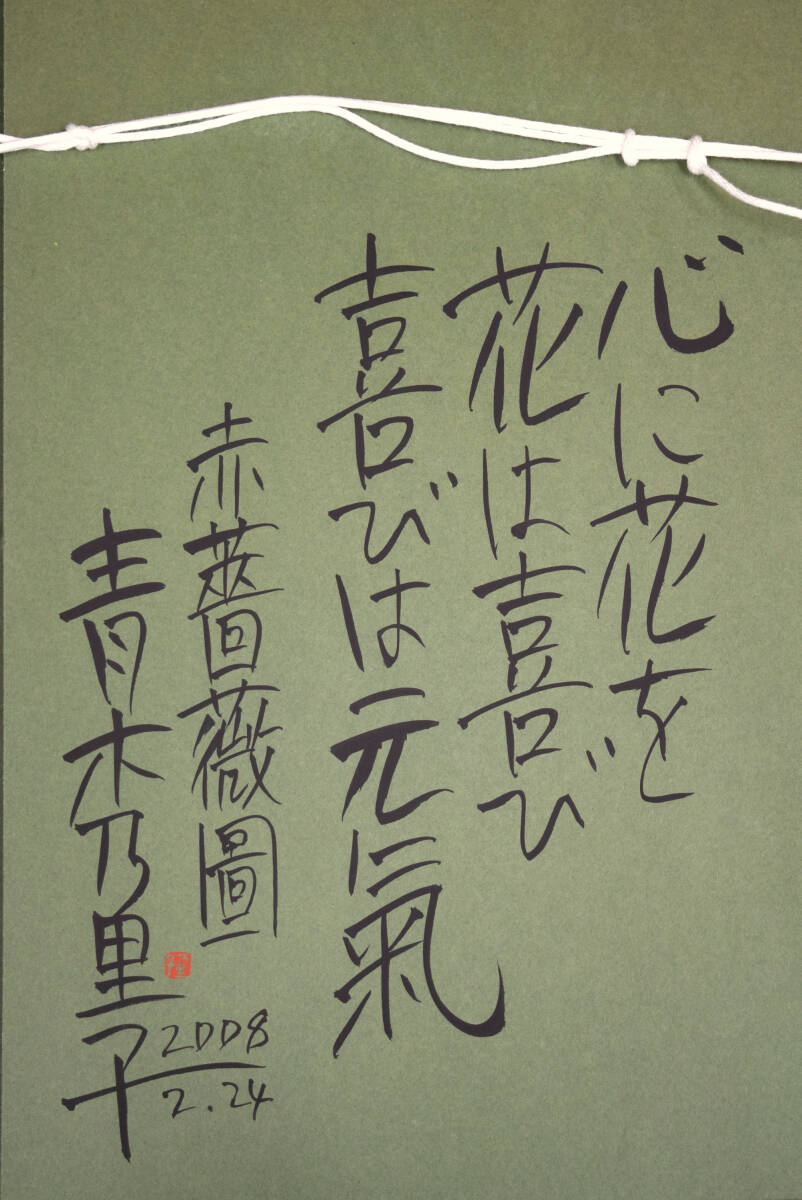 心に花を
花は喜び
喜びは元氣
赤薔薇圖
青木乃里子
2008
2.24